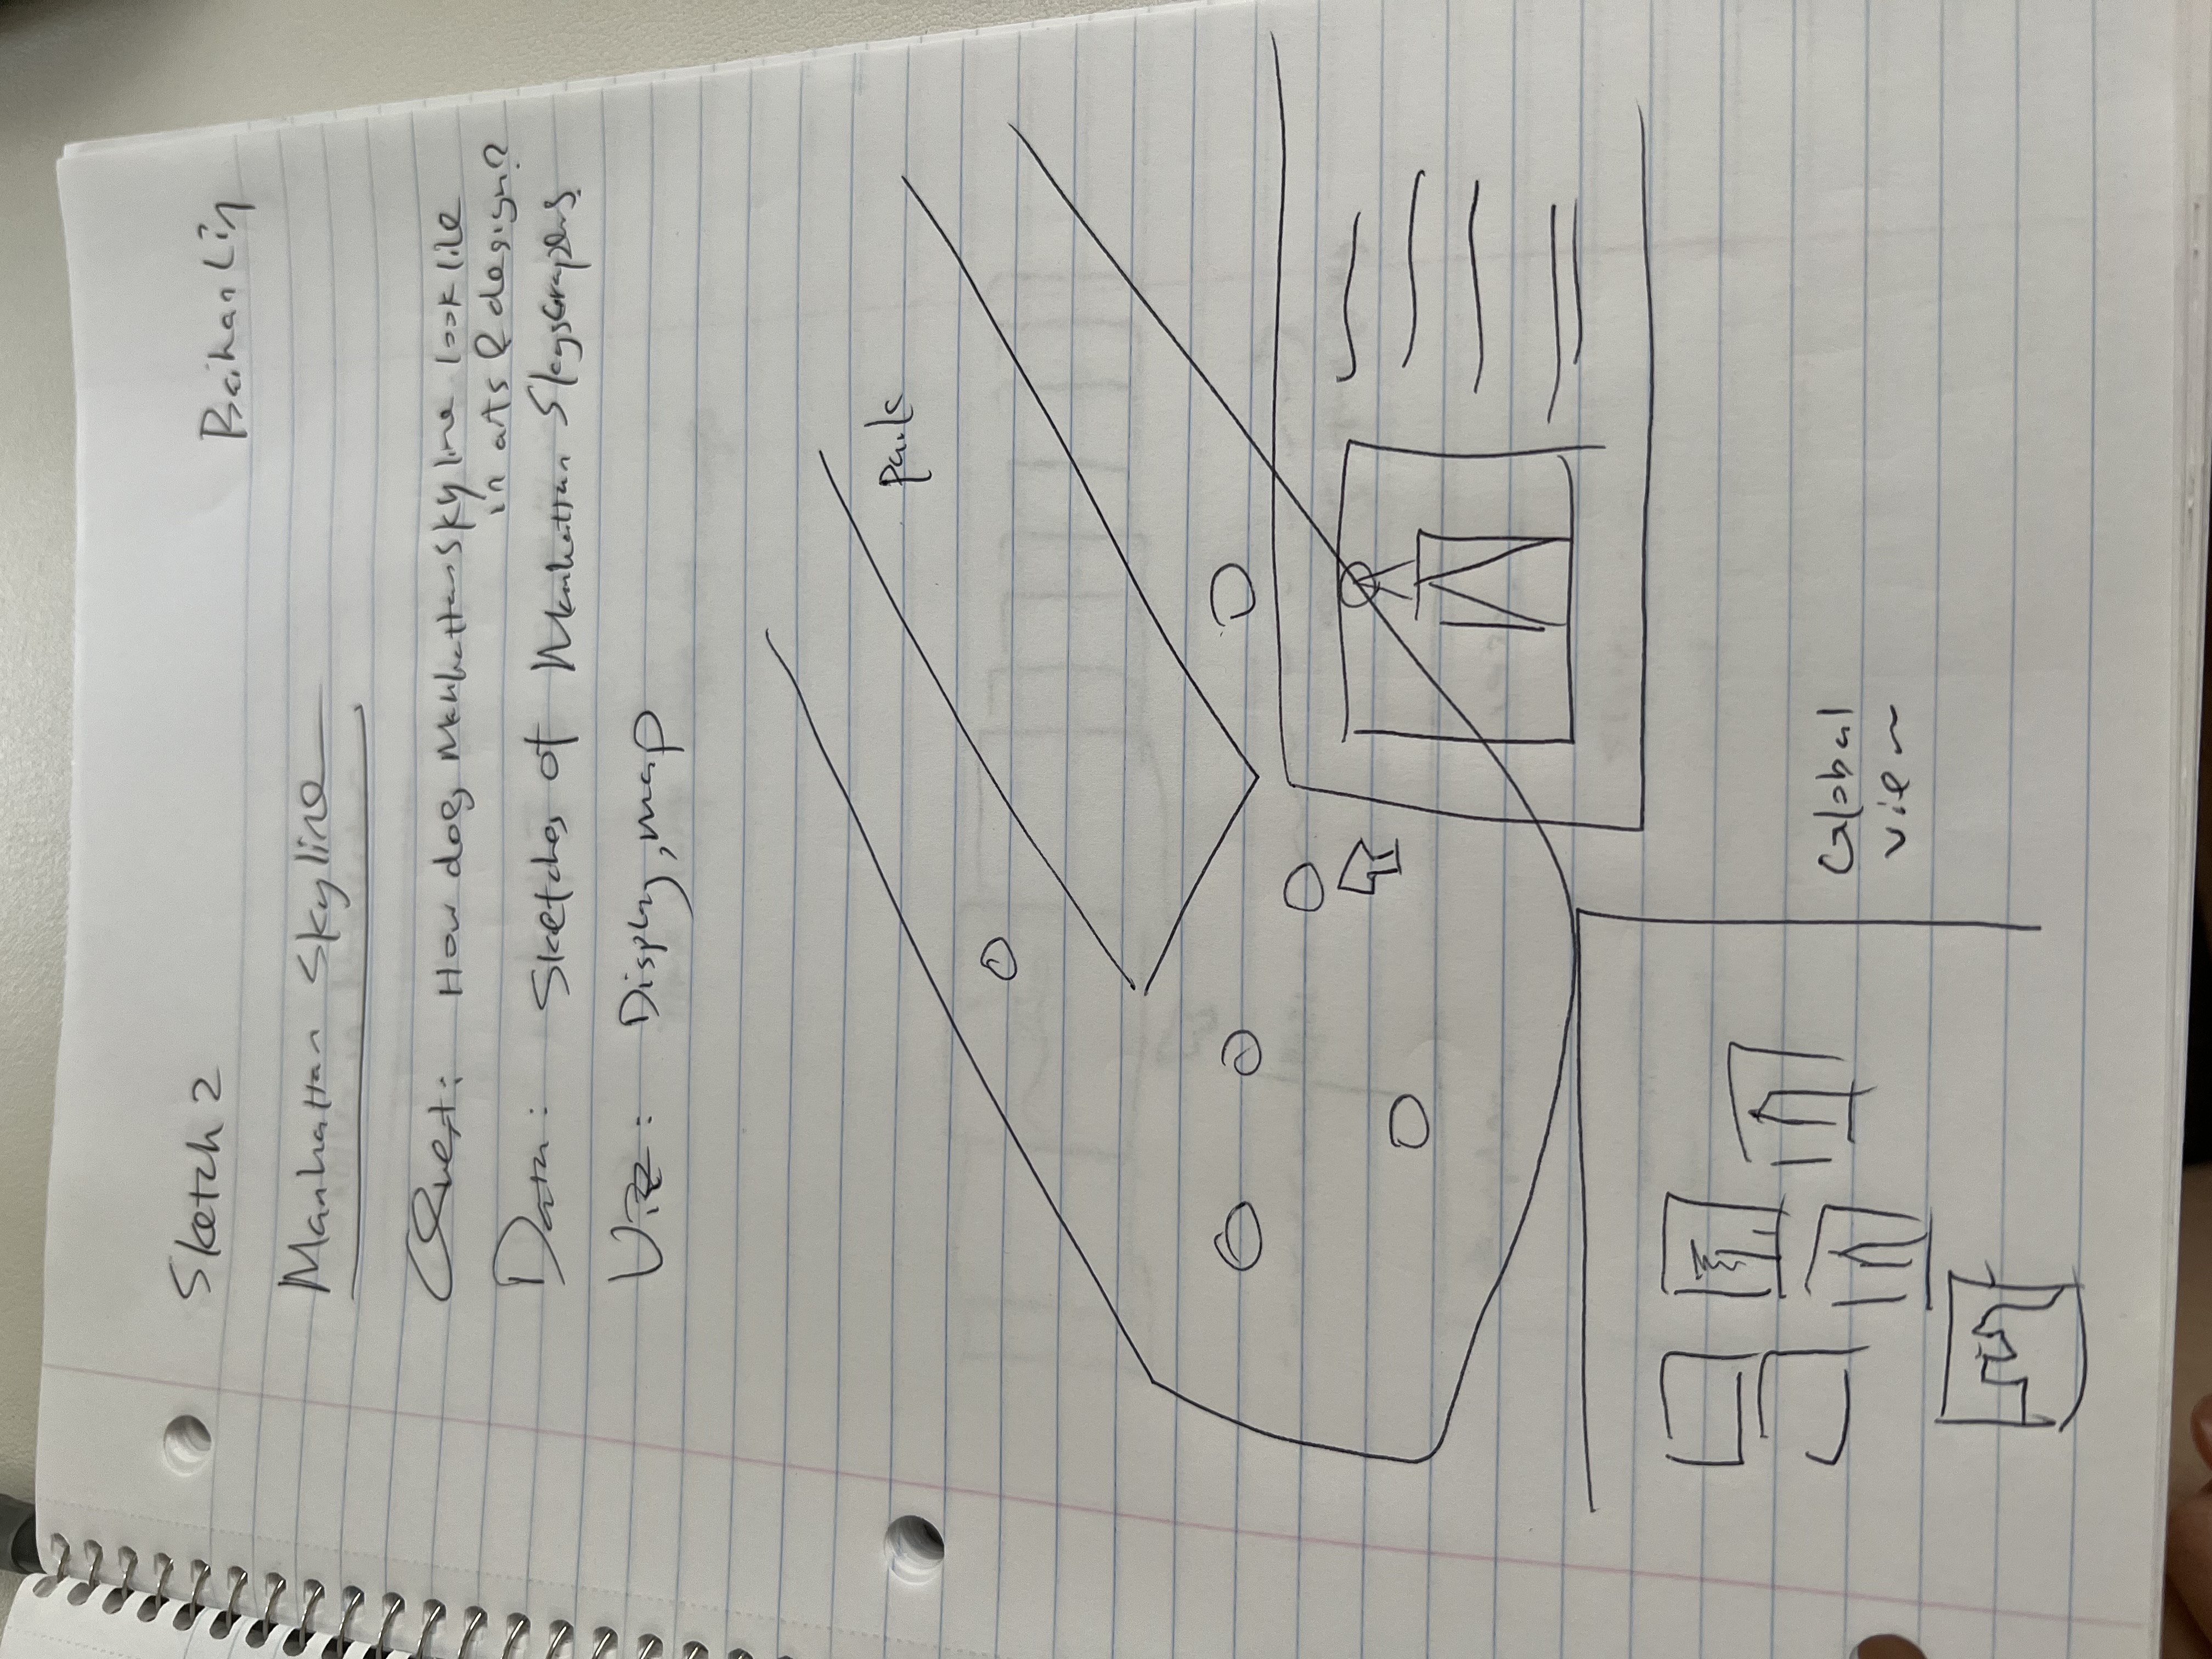 Sketch 2
Baihan Lin
Manhattan Skyline
Quest: How does Manhattan Skyline look like
in arts & design?
Data: Sketches of Manhattan Skyscrapers
Viz: Display, map
park
Global
view